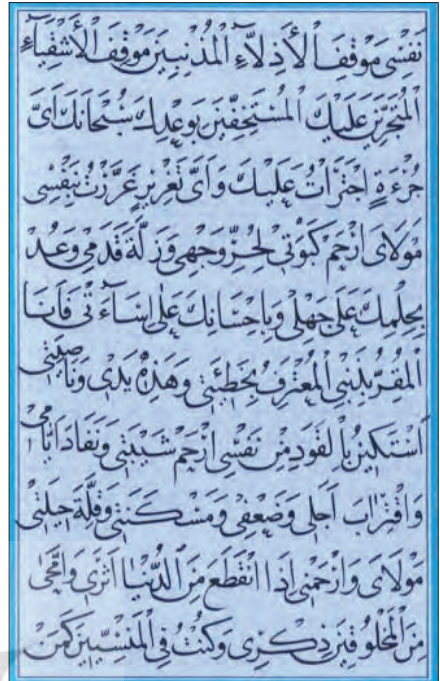 نَفْسِی مَوْقِفَ الْأَذِلَّاءِ الْمُذْنِبِینَ مَوْقِفَ الْأَشْقِیَاءِ
الْمُتَجَرِّینَ عَلَیْكَ الْمُسْتَخِفِّینَ بِوَعْدِكَ سُبْحَانَكَ اَیَّ
جُرْءَةٍ اجْتَرَأْتُ عَلَیْكَ وَاَیَّ تَغْرِیرٍ غَرَّرْتُ بِنَفْسِی
مَوْلَایَ ارْحَمْ كَبْوَتِی لِحُرِّ وَجْهِی وَزَلَّةَ قَدَمِی وَعُدْ
بِحِلْمِكَ عَلَی جَهْلِی وَبِاِحْسَانِكَ عَلَی اِسَاۤءَتِی فَاَنَا
الْمُقِرُّ بِذَنْبِی الْمُعْتَرِفُ بِخَطِیئَتِی وَهَذِهِ یَدِی وَنَاصِیَتِی
اَسْتَكِینُ بِالْقَوَدِ مِنْ نَفْسِی ارْحَمْ شَیْبَتِی وَنَفَادَ اَیَّامِی
وَاقْتِرَابَ اَجَلِی وَضَعْفِی وَمَسْكَنَتِی وَقِلَّةَ حِیلَتِی
مَوْلَایَ وَارْحَمْنِی اِذَا انْقَطَعَ مِنَ الدُّنْیَا اَثَرِی وَامَّحَی
مِنَ الْمَخْلُوقِینَ ذِكْرِی وَكُنْتُ فِی الْمَنْسِیِّینَ كَمَنْ